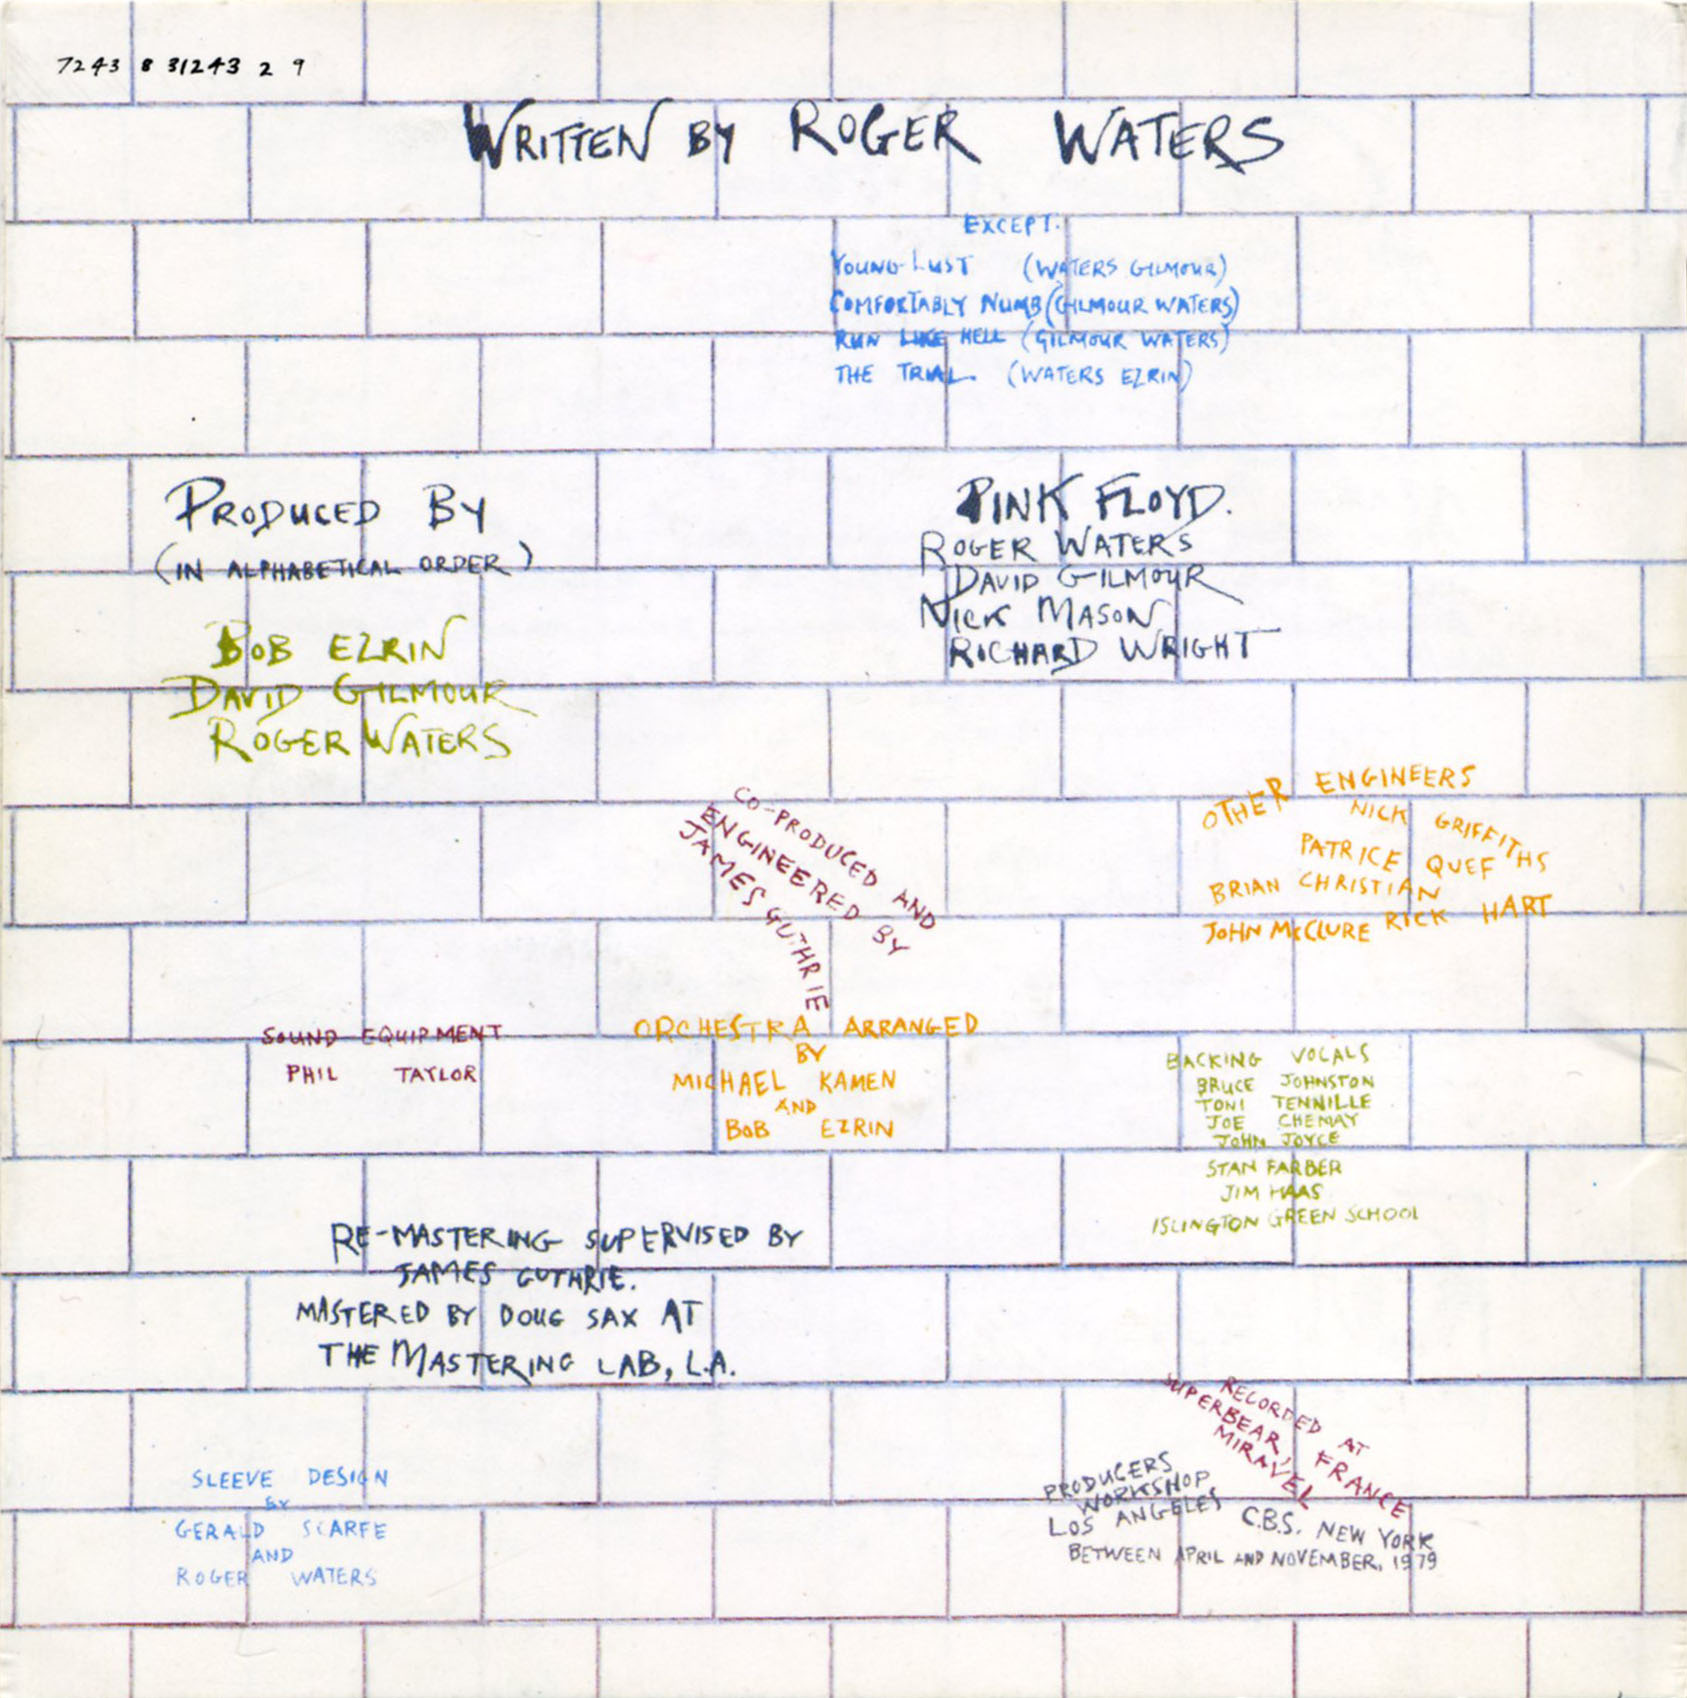 7243 8 31243 2 9
WRITTEN BY ROGER WATERS
EXCEPT:
YOUNG LUST (WATERS GILMOUR)
COMFORTABLY NUMB (GILMOUR WATERS)
RUN LIKE HELL (GILMOUR WATERS)
THE TRIAL. (WATERS EZRIN)
PRODUCED BY
(IN ALPHABETICAL ORDER)
BOB EZRIN
DAVID GILMOUR
ROGER WATERS
PINK FLOYD.
ROGER WATERS
DAVID GILMOUR
NICK MASON
RICHARD WRIGHT
CO-PRODUCED AND
ENGINEERED BY
JAMES GUTHRIE
OTHER ENGINEERS
NICK GRIFFITHS
PATRICE QUEF
BRIAN CHRISTIAN
JOHN McCLURE RICK HART
SOUND EQUIPMENT
PHIL TAYLOR
ORCHESTRA ARRANGED
BY
MICHAEL KAMEN
AND
BOB EZRIN
BACKING VOCALS
BRUCE JOHNSTON
TONI TENNILLE
JOE CHEMAY
JOHN JOYCE
STAN FARBER
JIM HAAS
ISLINGTON GREEN SCHOOL
RE-MASTERING SUPERVISED BY
JAMES GUTHRIE.
MASTERED BY DOUG SAX AT
THE MASTERING LAB, L.A.
SLEEVE DESIGN
BY
GERALD SCARFE
AND
ROGER WATERS
RECORDED AT
SUPERBEAR, FRANCE
MIRAVEL
PRODUCERS
WORKSHOP
LOS ANGELES C.B.S. NEW YORK
BETWEEN APRIL AND NOVEMBER, 1979